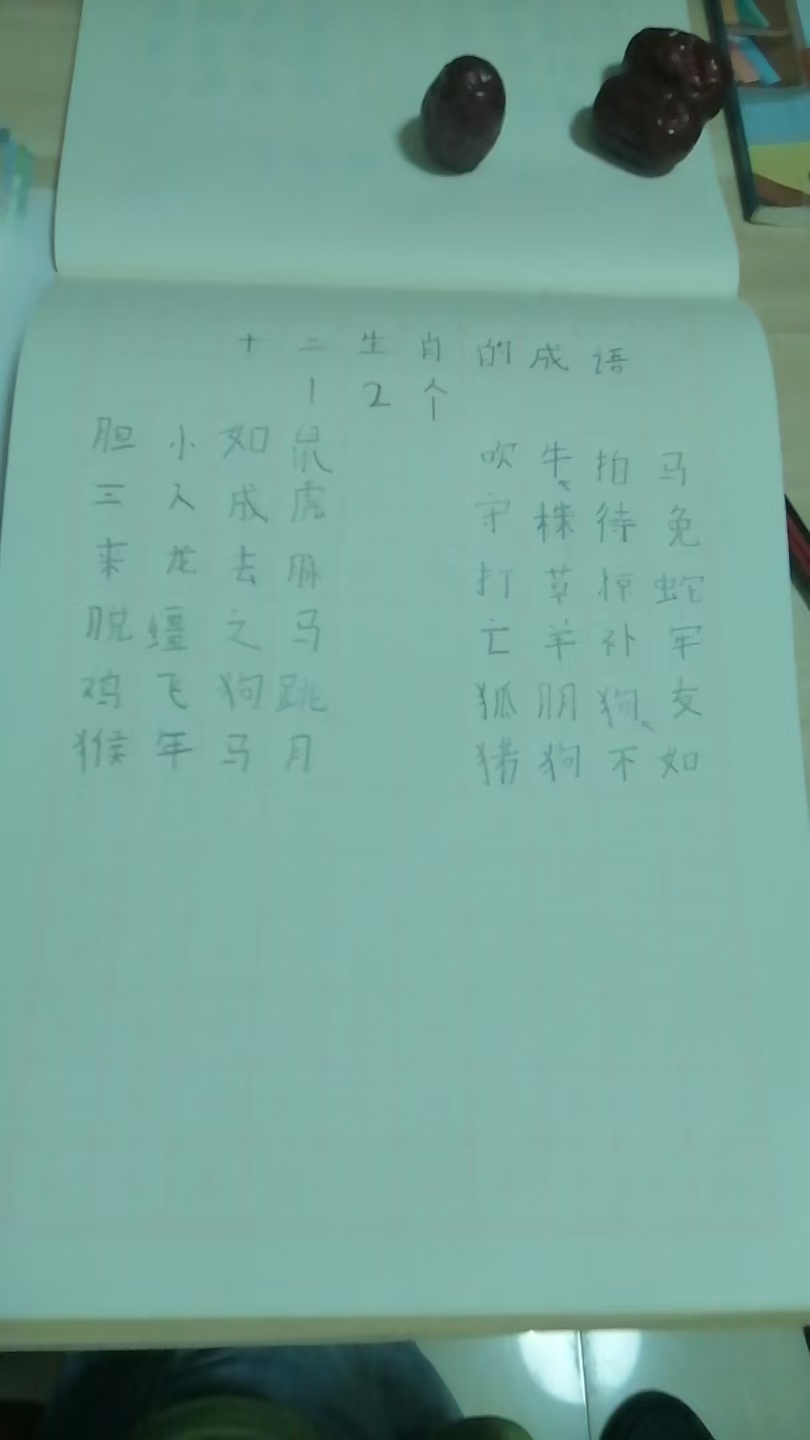 十二生肖的成语
12个
胆小如鼠 吹牛拍马
三人成虎 守株待兔
来龙去脉 打草惊蛇
脱缰之马 亡羊补牢
鸡飞狗跳 狐朋狗友
猴年马月 猪狗不如